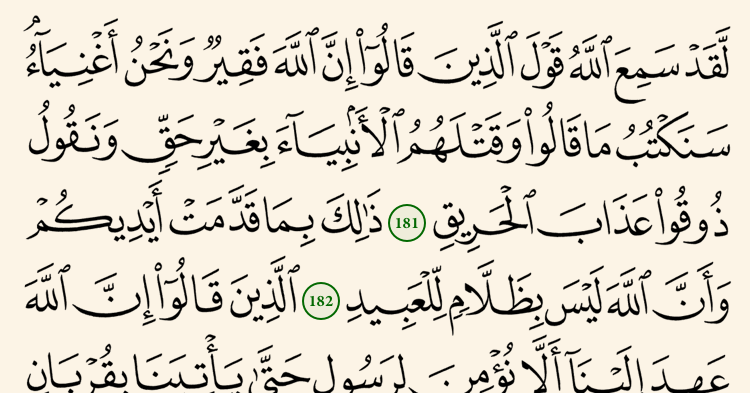 لَّقَدْ سَمِعَ ٱللَّهُ قَوْلَ ٱلَّذِينَ قَالُوٓا۟ إِنَّ ٱللَّهَ فَقِيرٌ وَنَحْنُ أَغْنِيَآءُ
سَنَكْتُبُ مَا قَالُوا۟ وَقَتْلَهُمُ ٱلْأَنۢبِيَآءَ بِغَيْرِ حَقٍّ وَنَقُولُ
ذُوقُوا۟ عَذَابَ ٱلْحَرِيقِ 181 ذَٰلِكَ بِمَا قَدَّمَتْ أَيْدِيكُمْ
وَأَنَّ ٱللَّهَ لَيْسَ بِظَلَّامٍ لِّلْعَبِيدِ 182 ٱلَّذِينَ قَالُوٓا۟ إِنَّ ٱللَّهَ
عَهِدَ إِلَيْنَآ أَلَّا نُؤْمِنَ لِرَسُولٍ حَتَّىٰ يَأْتِيَنَا بِقُرْبَانٍ